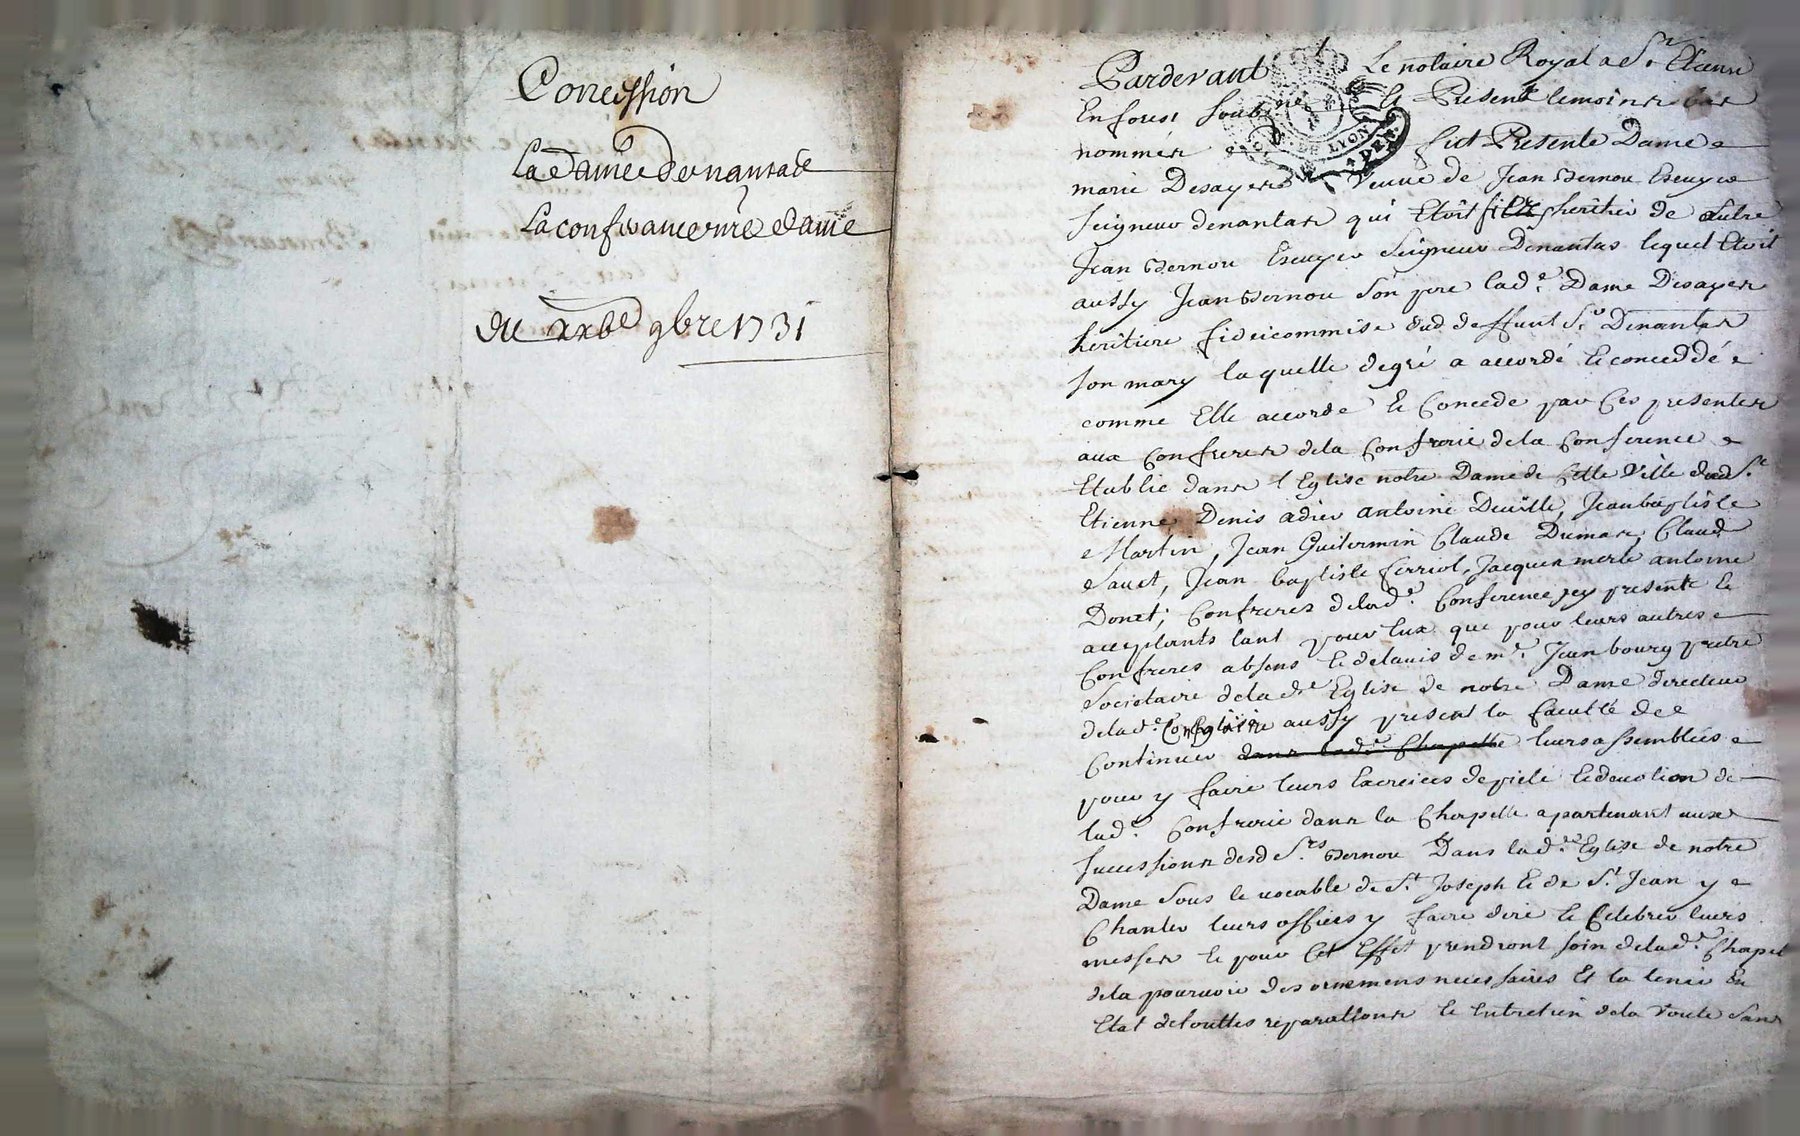 Concession
La dame de nantas
La confrairie nre dame
du xxbe 9bre 1731
Pardevant Le notaire Royal a St Etienne
En forest soubne Et Present temoins bas
nommés fut Presente Dame
marie Desayes veuve de Jean Bernou Escuyer
seigneur denantas qui Etoit fils heritier de autre
Jean Bernou Escuyer Seigneur Denantas lequel Etoit
aussy Jean Bernou son pere lade Dame Desayes
heritiere fideicommise dud deffunt Sr Denantas
son mary laquelle degré a accordé Et conceddé
comme Elle accorde Et Concede par Ces presentes
aux Confreres dela Confrerie dela Conference
Etablie dans l Eglise notre Dame de Cette Ville dud St
Etienne, Denis adier antoine Deville, Jean baptiste
Martin, Jean Guilermin Claude Dumas, Claude
Sauet, Jean baptiste ferriol, Jacques merle antoine
Donet; Confreres delade Conference jcy presents Et
acceptants tant pour Eux que pour leurs autres
Confreres absens Et delauis de mre Jean boury pretre
Societaire delade Eglise de notre Dame directeur
delade aussy present la faculté de
Continuer dans lade Chapelle leurs assemblées
pour y faire leurs Exercices de pieté Et devotion de
lade Confrerie dans la Chapelle apartenant aux
successions desd Srs Bernou Dans lade Eglise de notre
Dame sous le vocable de St Joseph Et de St Jean y
Chanter leurs offices y faire dire Et Celebrer leurs
messes Et pour Cet Effet prendront soin delade Chapel
dela pourvoir des ornemens necessaires Et la tenir En
Etat detouttes reparations Et Entretien dela Voute sans